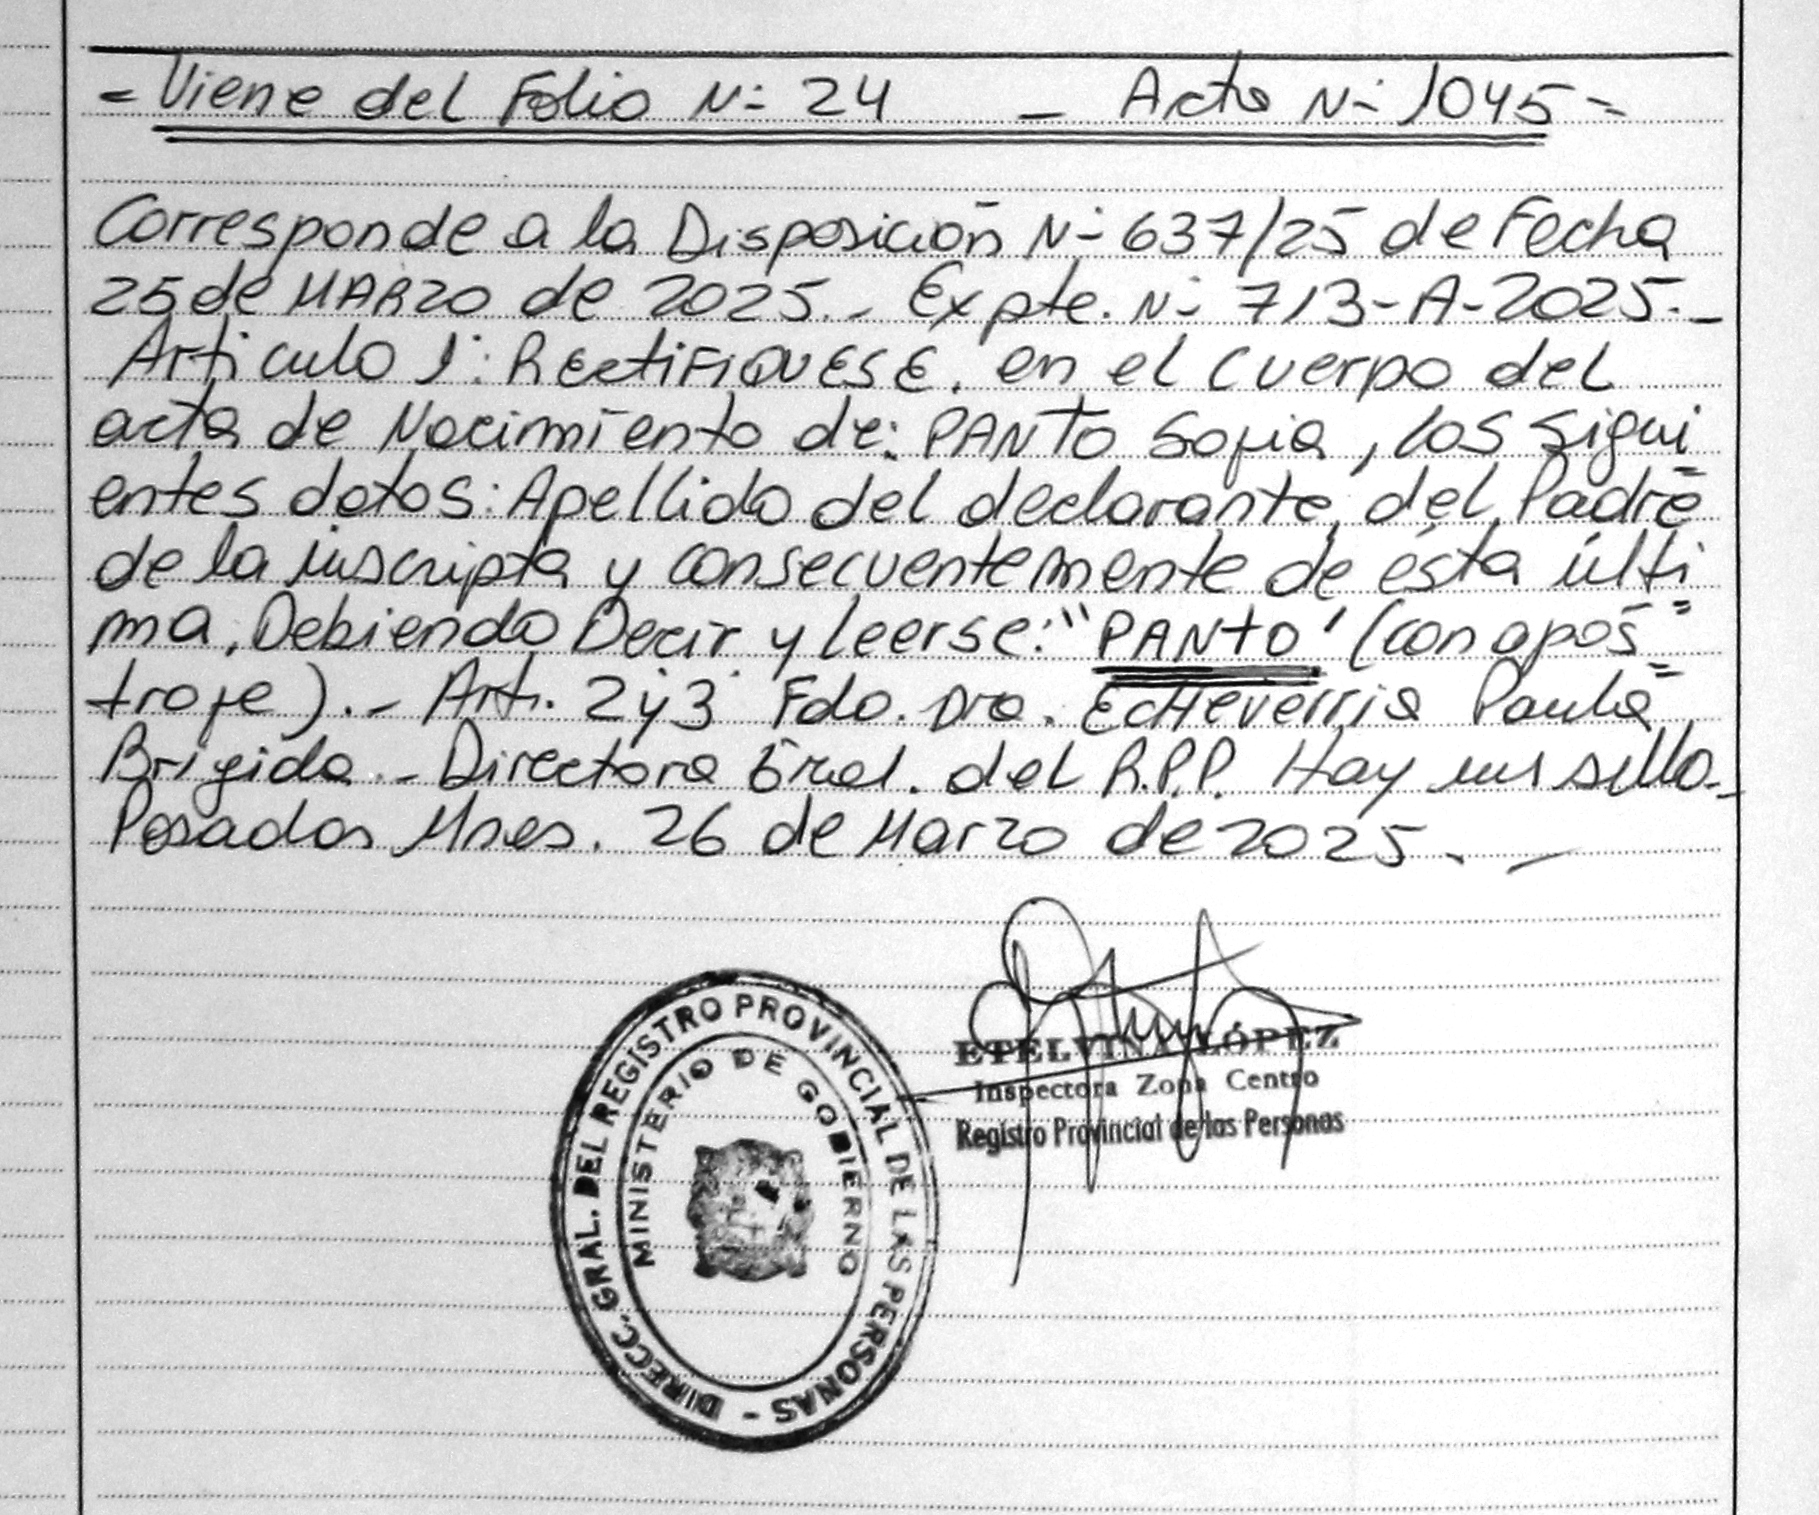 = Viene del Folio N- 24 - Acta N- 1045 =
Corresponde a la Disposición N- 637/25 de Fecha
25 de MARZO de 2025.- Expte. N- 713-A-2025.-
Articulo 1: RECTIFIQUESE. en el cuerpo del
acta de Nacimiento de: PANTO Sofia, los sigui
entes datos: Apellido del declarante, del Padre
de la inscripta y consecuentemente de ésta últi=
ma, Debiendo Decir y leerse: "PANTO' (con após=
trofe).- Art. 2 y 3 Fdo. Dra. Echeverria Paula
Brigida.- Directora Gral. del R.P.P. Hay un sello.-
Posadas Mnes. 26 de Marzo de 2025.-
ETELVINA LÓPEZ
Inspectora Zona Centro
Registro Provincial de las Personas
DIRECC. GRAL. DEL REGISTRO PROVINCIAL DE LAS PERSONAS -
MINISTERIO DE GOBIERNO